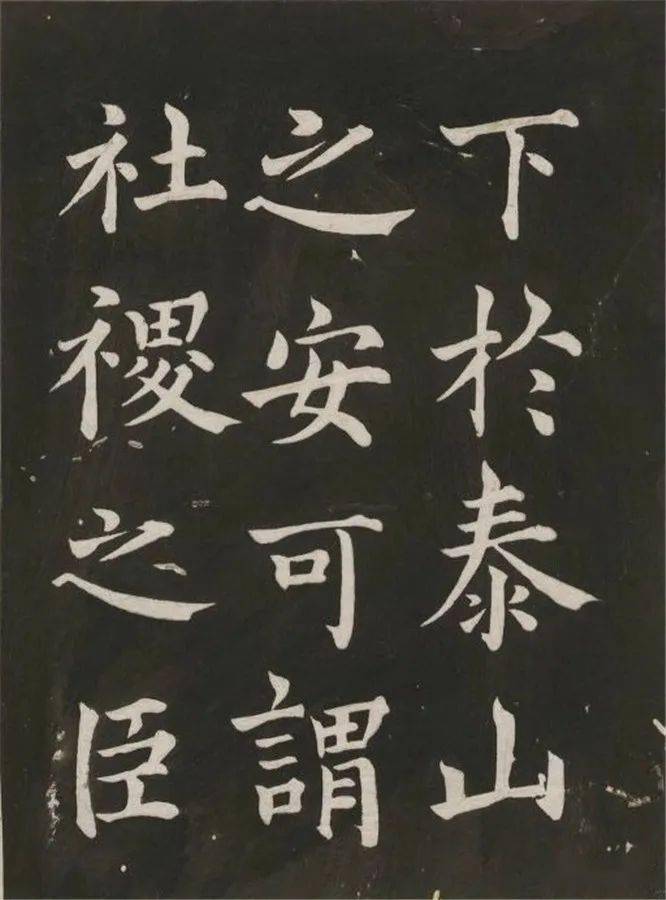 下於泰山
之安可謂
社稷之臣